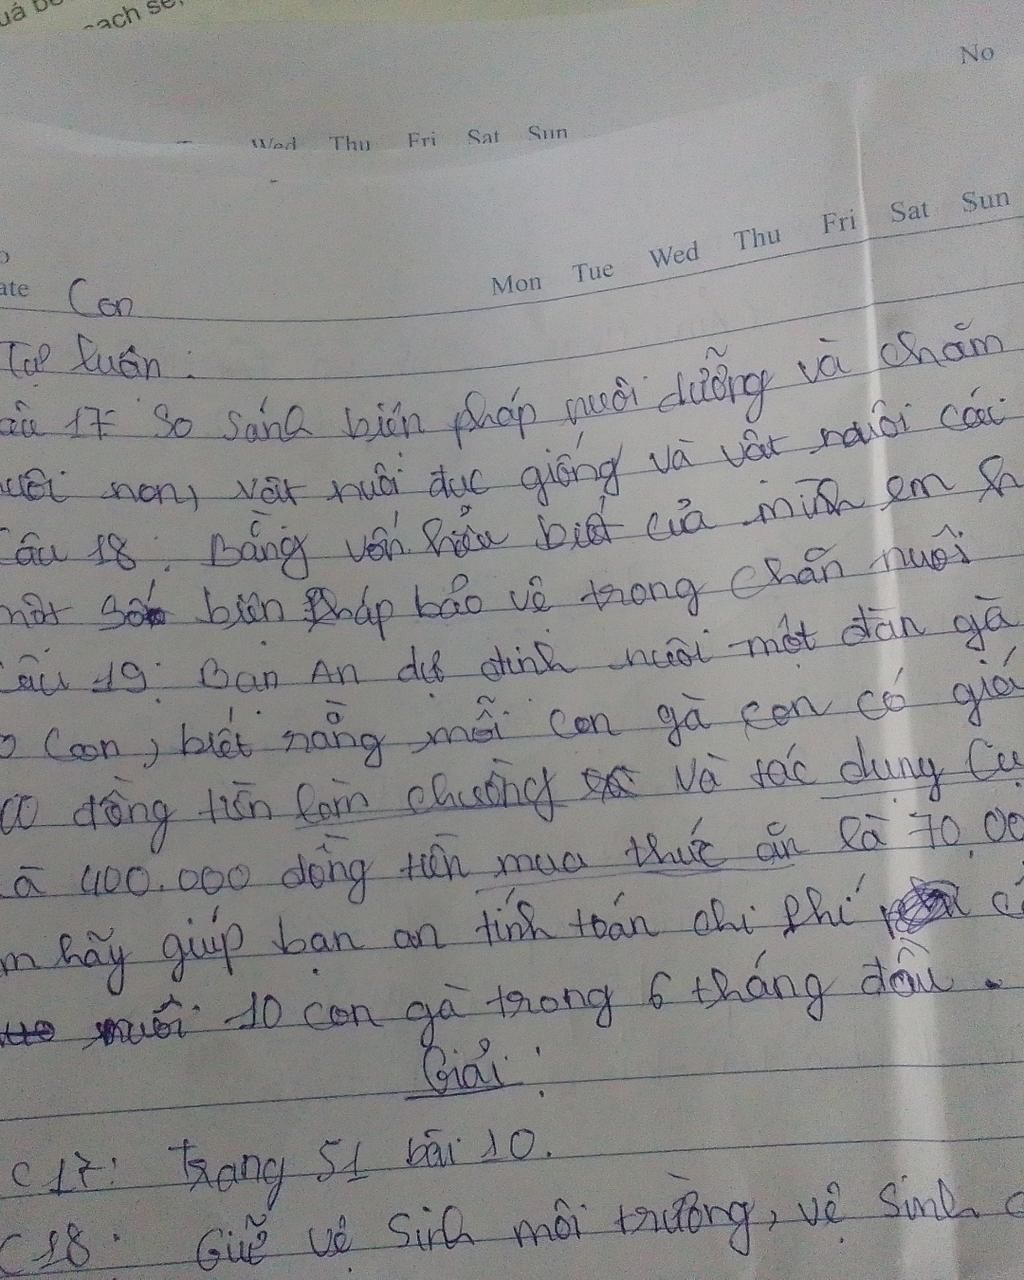 ạch sẽ,
No
Wed Thu Fri Sat Sun
Mon Tue Wed Thu Fri Sat Sun
ate Con
Tự luận:
âu 17: So sánh biện pháp nuôi dưỡng và chăm
uôi non, vật nuôi đực giống và vật nuôi cái
Câu 18: Bằng vốn hiểu biết của mình em h
một số biện pháp bảo vệ trong chăn nuôi
Câu 19: Bạn An dự định nuôi một đàn gà
con, biết rằng mỗi con gà con có giá
00 đồng tiền làm chuồng và tác dụng cụ
à 400.000 đồng tiền mua thức ăn là 70.00
m hãy giúp bạn an tính toán chi phí
nuôi 10 con gà trong 6 tháng đầu.
Giải:
C17: Trang 51 bài 10.
C18: Giữ vệ sinh môi trường, vệ sinh c